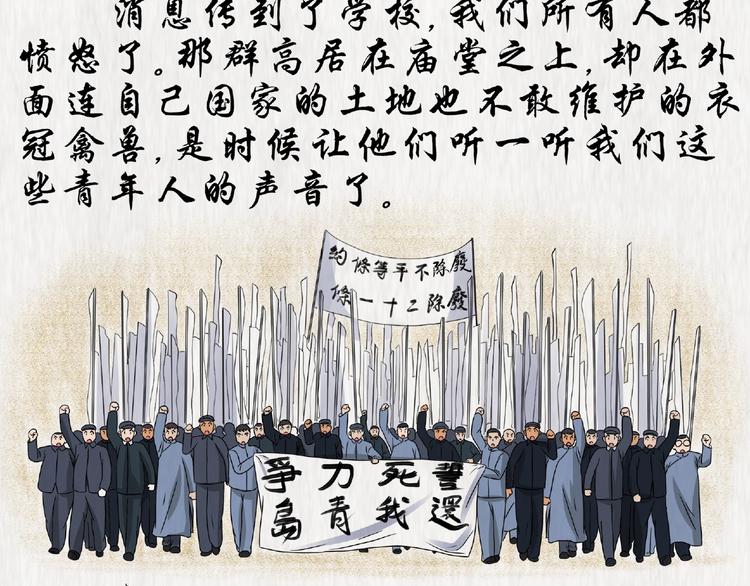 消息传到了学校,我们所有人都
愤怒了。那群高居在庙堂之上,却在外
面连自己国家的土地也不敢维护的衣
冠禽兽,是时候让他们听一听我们这
些青年人的声音了。
廢除不平等條約
廢除二十一條
誓死力爭
還我青島